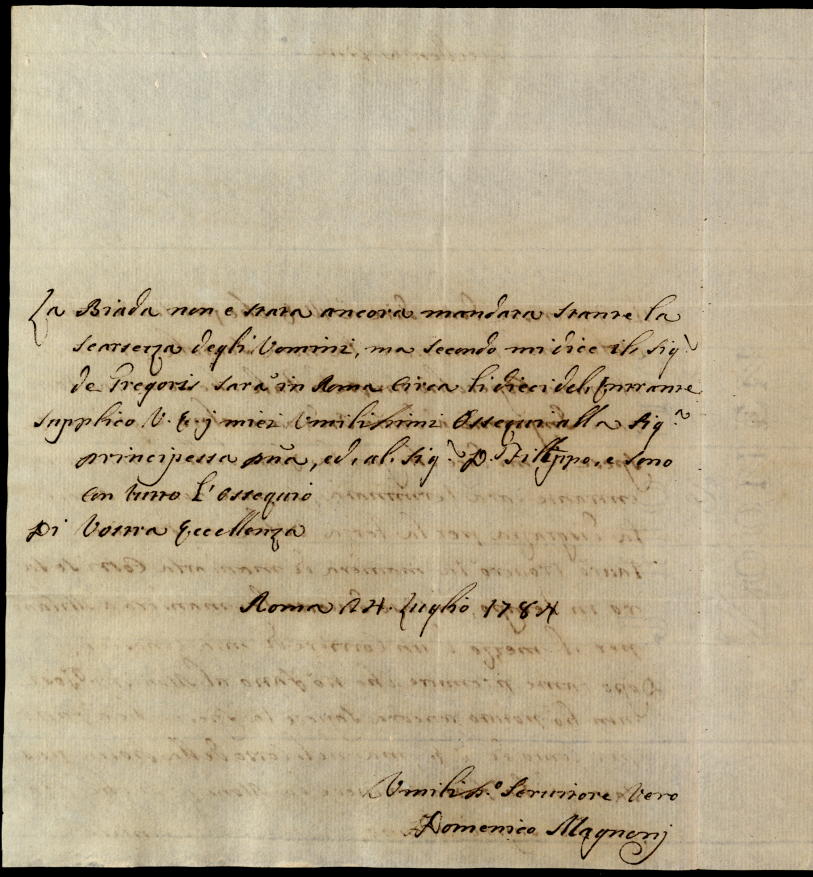 La Biada non e stata ancora mandata stante la
scarsezza degli Uomini, ma secondo mi dice il Sig.r
de Gregoris sara in Roma Circa li dieci del Entrante
Supplico V. E. j miei Umilissimi Ossequi alla Sig.ra
principessa pña, ed al Sig.r D. Filippo, e sono
con tutto l'ossequio
Di Vostra Eccellenza
Roma 24 Luglio 1784
Umiliss.o Servitore Vero
Domenico Magnonj